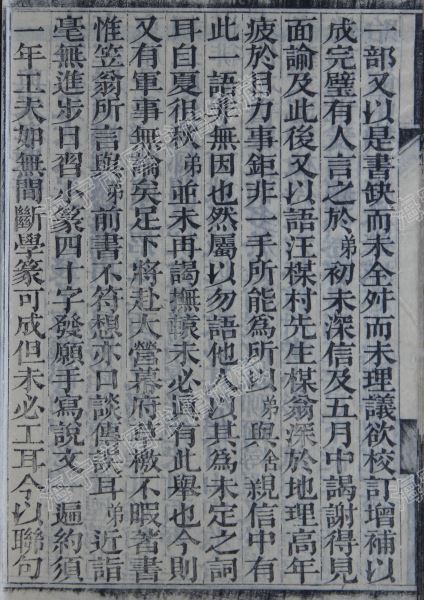 一部又以是書缺而未全舛而未理議欲校訂增補以
成完璧有人言之於弟初未深信及五月中謁謝得見
面諭及此後又以語汪楳村先生楳翁深於地理高年
疲於目力事鉅非一手所能為所以弟與舍親信中有
此一語非無因也然屬以勿語他人以其為未定之詞
耳自夏徂秋弟並未再謁撫轅未必真有此舉也今則
又有軍事無論矣足下將赴大營幕府草檄不暇著書
惟笠翁所言與弟前書不符想亦口談傳誤耳弟近詣
毫無進步日習小篆四十字發願手寫說文一遍約須
一年工夫如無間斷學篆可成但未必工耳今以聯句